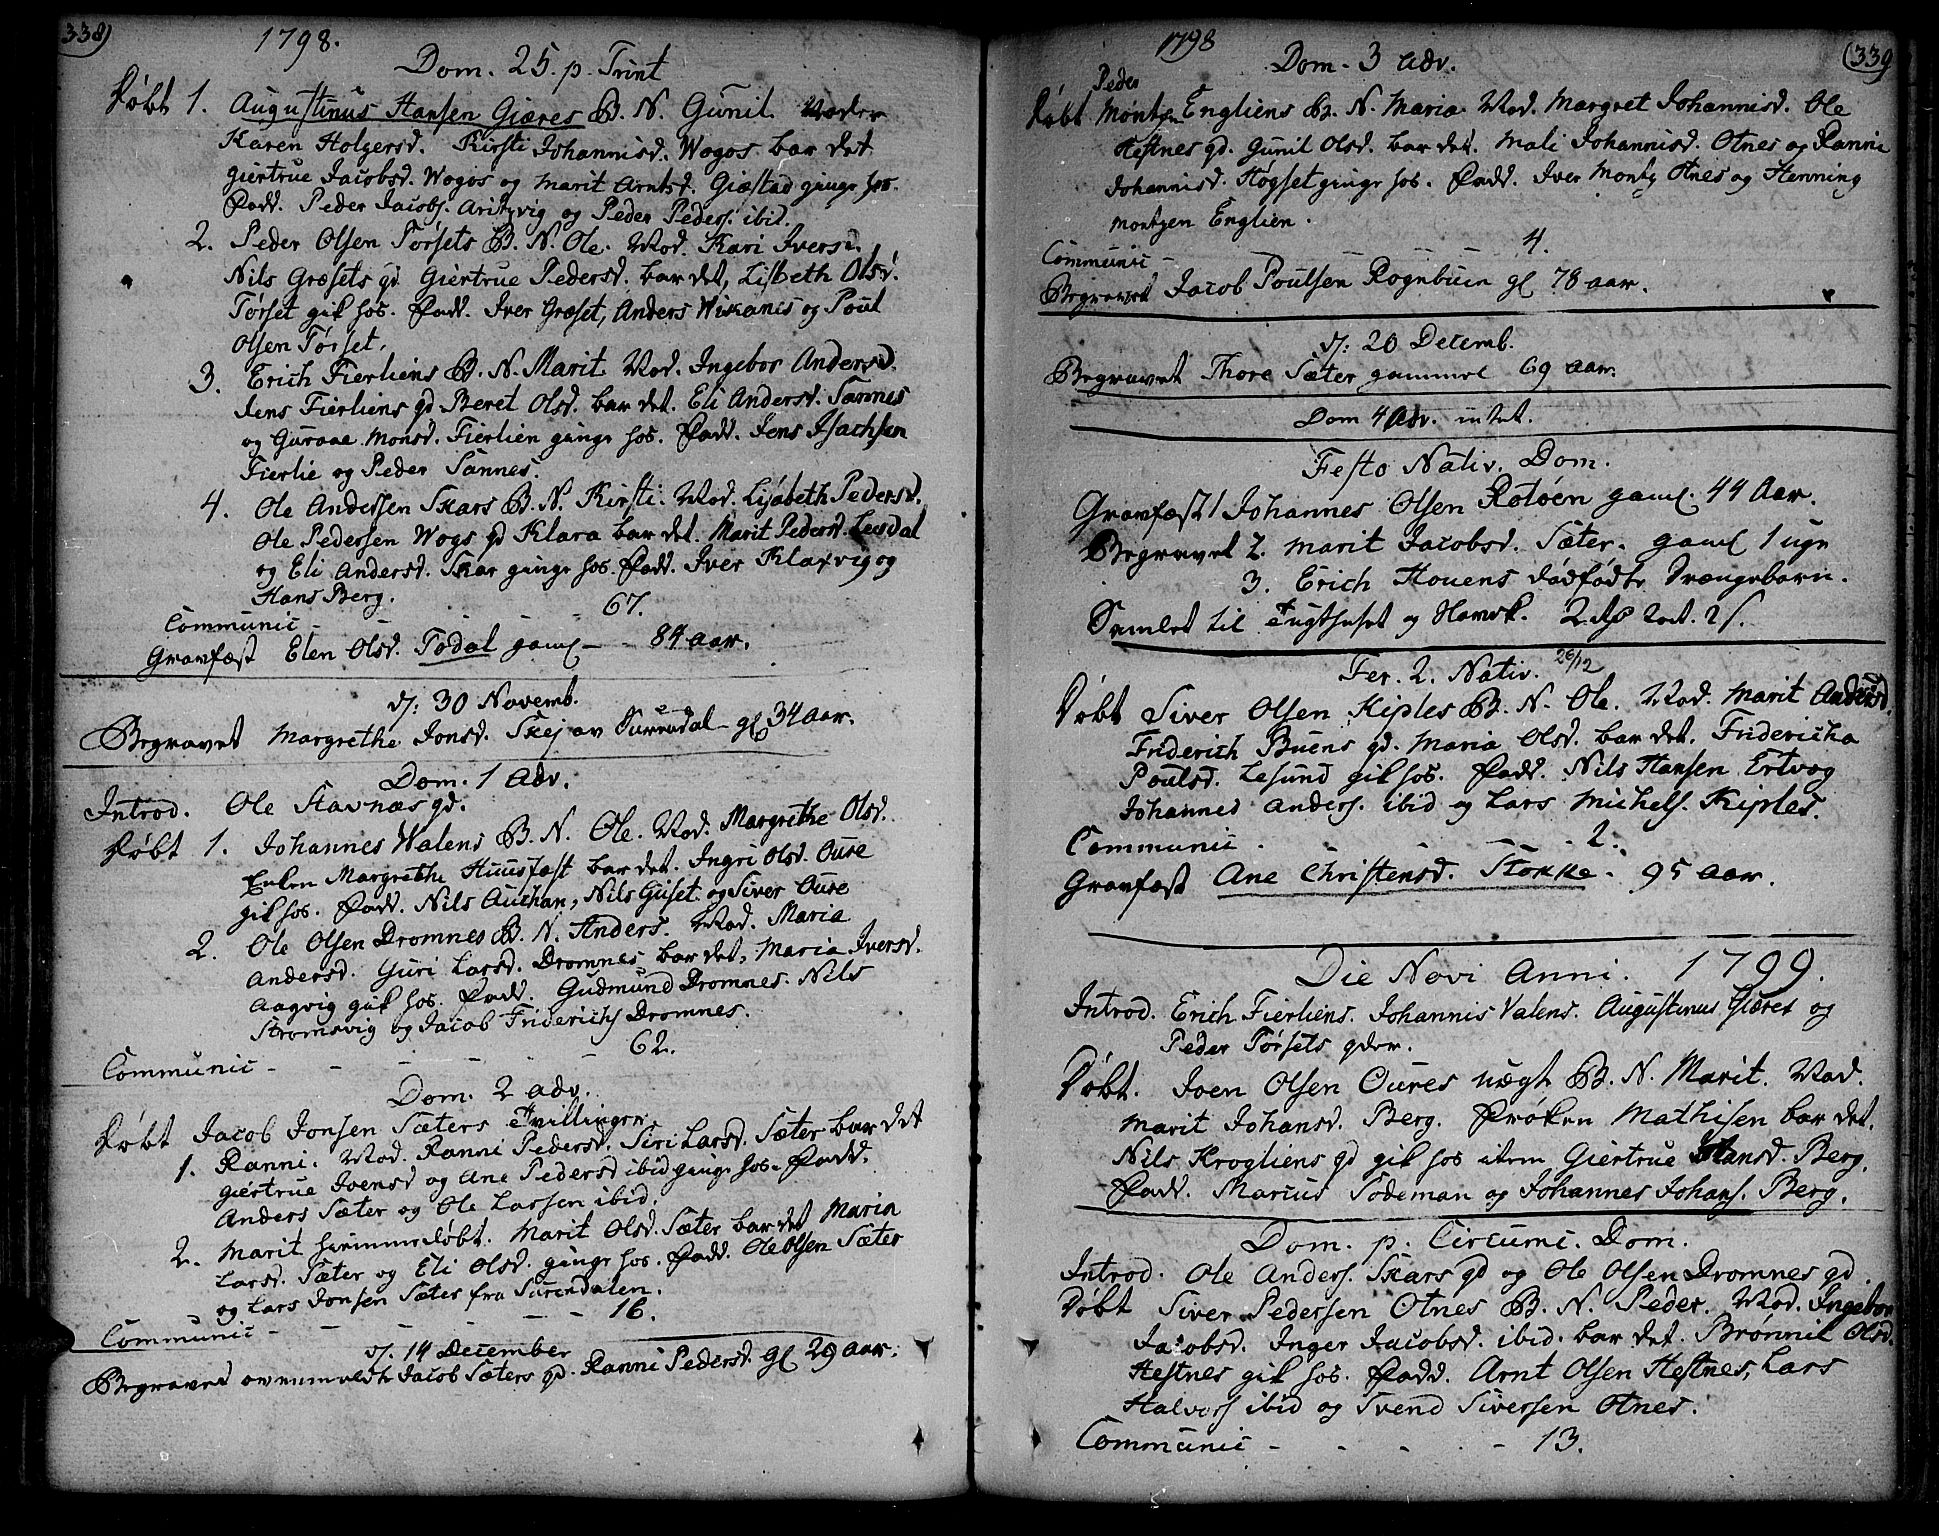 338)
1798.
Dom. 25. p. Trint
Døbt 1. Augustinus Hansen Giæres B. N. Gunil. Moder
Karen Holgersd. Kirsti Johannisd. Wogos bar det
Giertrue Jacobsd. Wogos og Marit Arntsd. Giæstad ginge hos.
Fadd. Peder Jacobs. og Peder Peders. ibid.
2. Peder Olsen Torsets B. N. Ole. Mod. Kari Iversd.
Nils Græsets qd Giertrue Pedersd. bar det, Lisbeth Olsd.
Torset gik hos. Fadd. Iver Græset, Anders Wikanes og Poul
Olsen Torset.
3. Erich Fierliens B. N. Marit Mod. Ingebor Andersd.
Jens Fierliens qd Beret Olsd. bar det. Eli Andersd. Sannes
og Guroae Monsd. Fierlien ginge hos. Fadd. Jens Isachsen
Fierlie og Peder Sannes.
4. Ole Andersen Skars B. N. Kirsti. Mod. Lisabeth Pedersd.
Ole Pedersen Wogs qd Klara bar det. Marit Pedersd.
og Eli Andersd. Skar ginge hos. Fadd. Iver Klaxvig og
Hans Berg.
Communic - - - 67.
Gravfæst Elen Olsd. Todal gaml - - 84 aar.
d: 30 Novemb.
Begravet Margrethe Jonsd. Skej av Surendal - gl 34 aar.
Dom. 1 Adv.
Introd. Ole Stavnæs qd.
Døbt 1. Johannes Walens B. N. Ole. Mod. Margrethe Olsd.
Margrethe Huusfast bar det. Ingri Olsd. Oure
gik hos. Fadd. Nils Authan, Nils Guset og Siver Oure
2. Ole Olsen Dromnes B. N. Anders. Mod. Maria
Andersd. Guri Larsd. Dromnes bar det, Maria Iversd.
Aagvig gik hos. Fadd. Gudmund Dromnes. Nils
Stromsvig og Jacob Friderichs Dromnes.
Communic - - - - 62.
Dom. 2 adv.
Døbt Jacob Jonsen Sæters Tvillinger
1. Ranni. Mod. Ranni Pedersd. Siri Larsd. Sæter bar det
Giertrue Joensd og Ane Pedersd ibid ginge hos. Fadd.
Anders Sæter og Ole Larsen ibid.
2. Marit hiemmedøbt. Marit Olsd. Sæter bar det Maria
Larsd. Sæter og Eli Olsd. ginge hos. Fadd. Ole Olsen Sæter
og Lars Jonsen Sæter fra Surendalen.
Communic - - - - - 16.
d. 14 December
Begraved ovenmeldte Jacob Sæters qd. Ranni Pedersd. gl 29 aar.
1798
339
Dom. 3 adv.
Peder
Døbt Montzen Engliens B. N. Maria. Mod. Margret Johannisd. Ole
Hestnes qd. Gunil Olsd. bar det. Mali Johannisd. Otnes og Ranni
Johannisd. Hogset ginge hos. Fadd. Iver Montz Otnes og Henning
Montzen Englien.
Communic - 4.
Begravet Jacob Poulsen Rognbuen gl 78 aar.
d: 20 Decemb.
Begravet Thore Sæter gammel 69 aar.
Dom 4 Adv. intet.
Festo Nativ. Dom.
Gravfæst 1 Johannes Olsen Rotøen gaml. 44 Aar.
Begravet 2. Marit Jacobsd. Sæter. gaml 1 uge
3. Erich Houens dødfødte drængebarn.
Samlet til Tugthuset og 2
Fer. 2. Nativ. 26/12
Døbt Siver Olsen Kiples B. N. Ole. Mod. Marit Andersd.
Friderich Buens qd. Maria Olsd. bar det. Fridericha
Poulsd. Lesund gik hos. Fadd. Nils Hansen Ertvog
Johannes Anders. ibid og Lars Michels. Kiples.
Communic - - 2.
Gravfæst Ane Christensd. Stokke. 95 aar.
Die Novi Anni. 1799.
Introd. Erich Fierliens. Johannis Valens. Augustinus Giæres og
Peder Torsets qder.
Døbt. Joen Olsen Oures uægt B. N. Marit. Mod.
Marit Johansd. Berg. Frøken Mathisen bar det.
Nils Krogliens qd gik hos item Giertrue Hansd. Berg.
Fadd. Marius Sodeman og Johannes Johans. Berg.
Dom. p. Circumc. Dom.
Introd. Ole Anders. Skars qd og Ole Olsen Dromnes qd.
Døbt Siver Pedersen Otnes B. N. Peder. Mod. Ingebor
Jacobsd. Inger Jacobsd. ibid. bar det. Brønnil Olsd.
Hestnes gik hos. Fadd. Arnt Olsen Hestnes, Lars
Halvors ibid og Svend Siversen Otnes.
Communic - - - - 13.